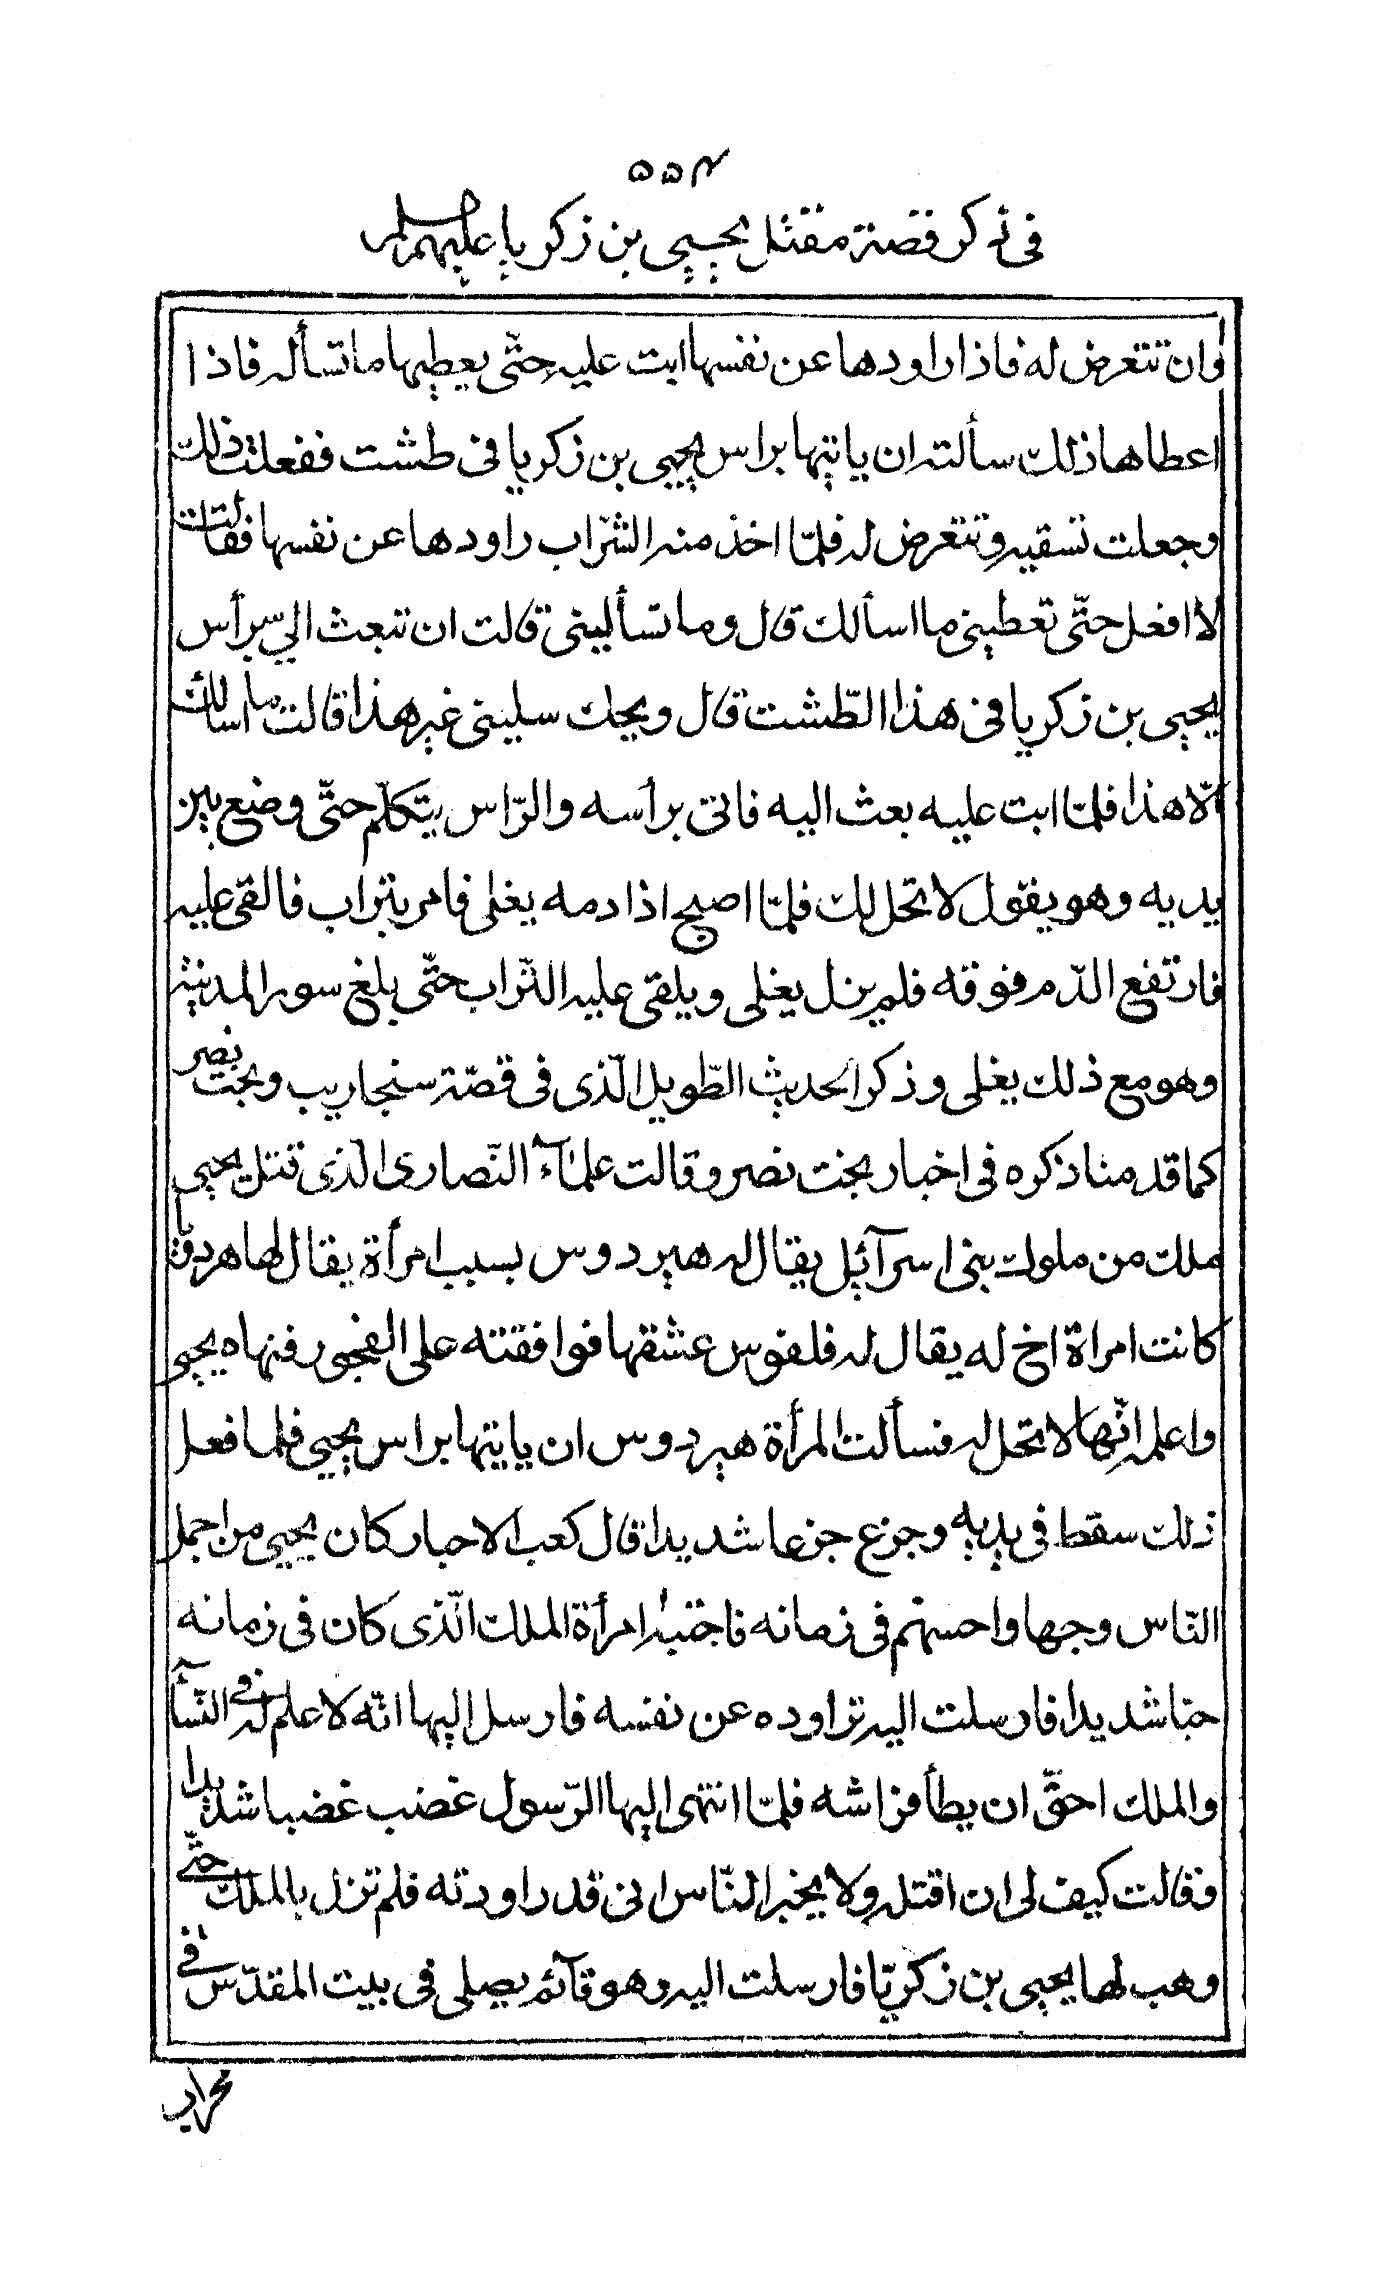 ۵۵۴
في ذكر قصة مقتل يحيى بن زكريا عليهم السلام
وان تتعرض له فاذا راودها عن نفسها ابت عليه حتّى يعطيها ما تسأله فاذا
اعطاها ذلك سألته ان ياتيها براس يحيى بن زكريا في طشت ففعلت ذلك
وجعلت تسقيه وتتعرض له فلمّا اخذ منه الشّراب راودها عن نفسها فقالت
لا افعل حتّى تعطيني ما اسألك قال وما تسأليني قالت ان تبعث الي برأس
يحيى بن زكريا في هذا الطّشت قال ويحك سليني غير هذا قالت ما اسالك
الّا هذا فلمّا ابت عليه بعث اليه فاتى برأسه والرّاس يتكلّم حتّى وضع بين
يديه وهو يقول لا تحل لك فلمّا اصبح اذا دمه يغلى فامر بتراب فالقى عليه
فارتفع الدّم فوقه فلم يزل يغلى ويلقى عليه التّراب حتّى بلغ سور المدينة
وهو مع ذلك يغلى وذكر الحديث الطّويل الّذى في قصّة سنجاريب وبخت نصر
كما قدمنا ذكره في اخبار بخت نصر وقالت علمآء النّصارى الّذى قتل يحيى
ملك من ملوك بنى اسرآئيل يقال له هيردوس بسبب امرأة يقال لها هردوقيا
كانت امراة اخ له يقال له فلفوس عشقها فوافقته على الفجور فنهاه يحيى
واعلمه انّها لا تحل له فسألت المرأة هيردوس ان ياتيها براس يحيى فلما فعل
ذلك سقط في يديه وجزع جزعا شديدا قال كعب الاحبار كان يحيى من اجمل
النّاس وجها واحسنهم في زمانه فاحبته امرأة الملك الّذى كان في زمانه
حبّا شديدا فارسلت اليه تراوده عن نفسه فارسل اليها انّه لا علم له في النّسآء
والملك احقّ ان يطأ فراشه فلمّا انتهى اليها الرّسول غضب غضبا شديدا
وقالت كيف لى ان اقتله ولا يخبر النّاس انى قد راودته فلم تزل بالملك حتّى
وهب لها يحيى بن زكريّا فارسلت اليه وهو قآئم يصلى في بيت المقدّس في
محراب